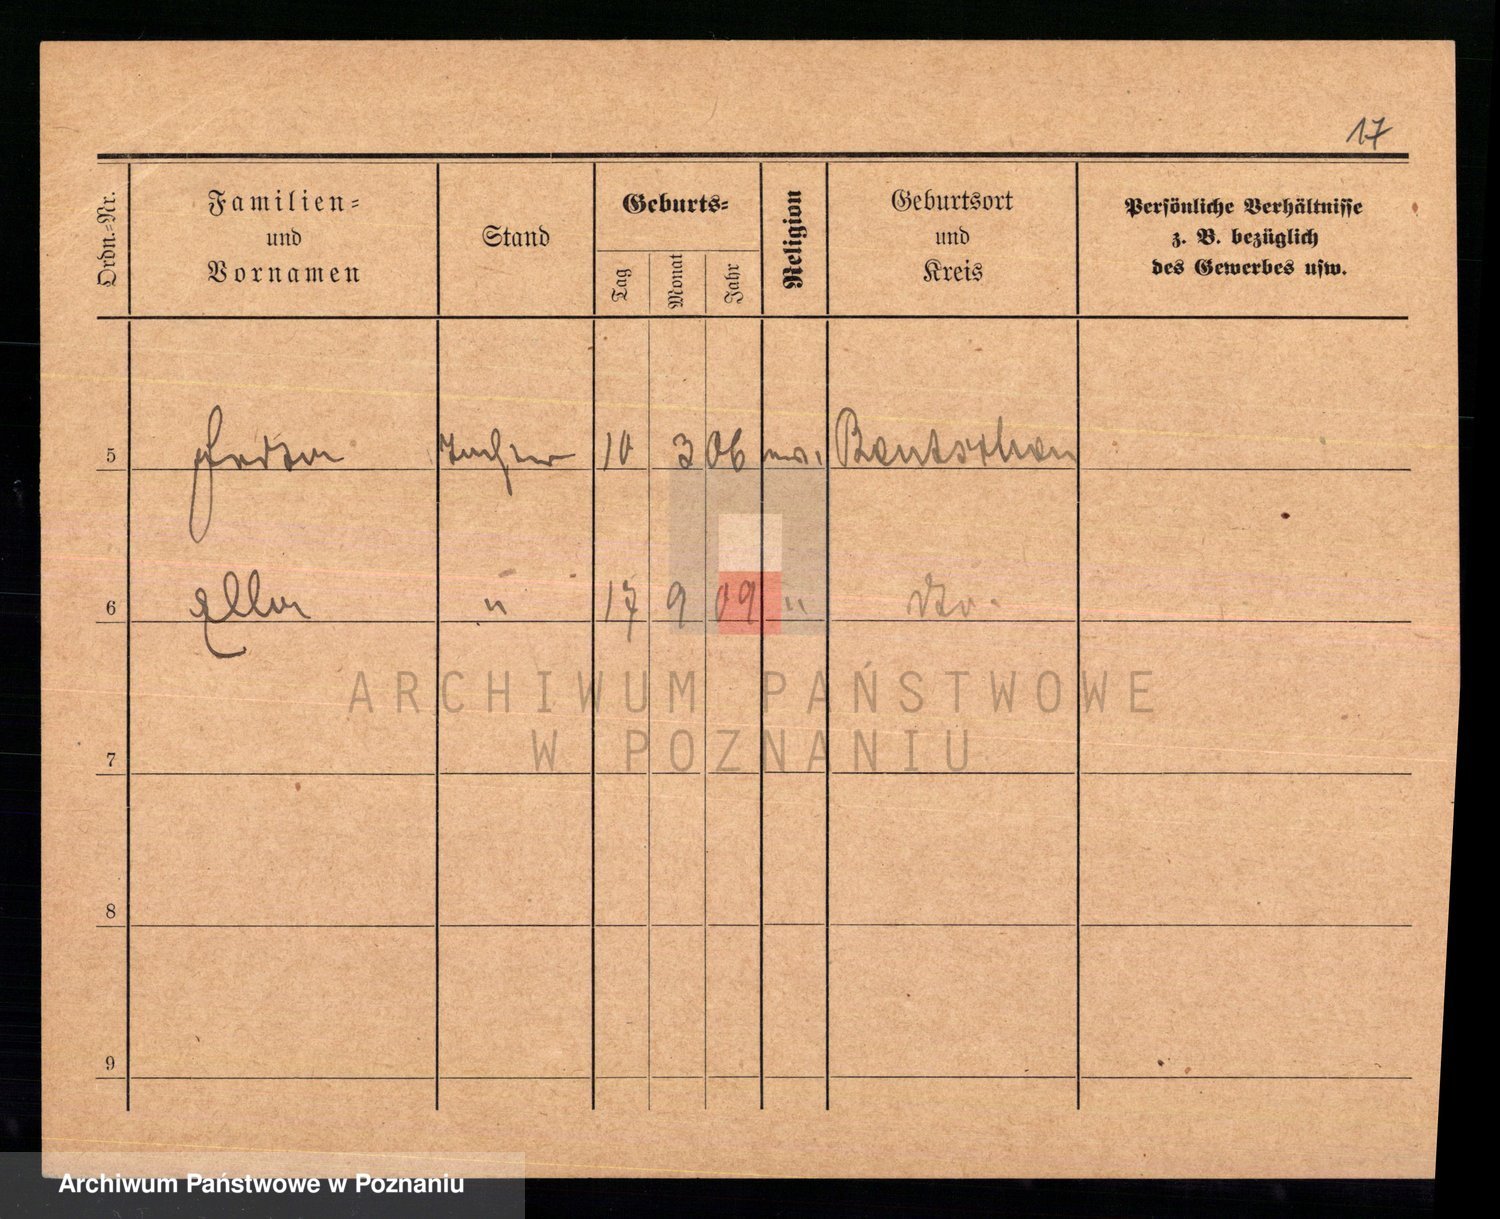 17
Ordn.-Nr.
Familien-
und
Vornamen
Stand
Geburts-
Tag
Monat
Jahr
Religion
Geburtsort
und
Kreis
Persönliche Verhältnisse
z. B. bezüglich
des Gewerbes usw.
5 Tochter 10 3 06 ev. Bentschen
6 Ella " 17 9 09 " do.
7
8
9
ARCHIWUM PAŃSTWOWE
W POZNANIU
Archiwum Państwowe w Poznaniu